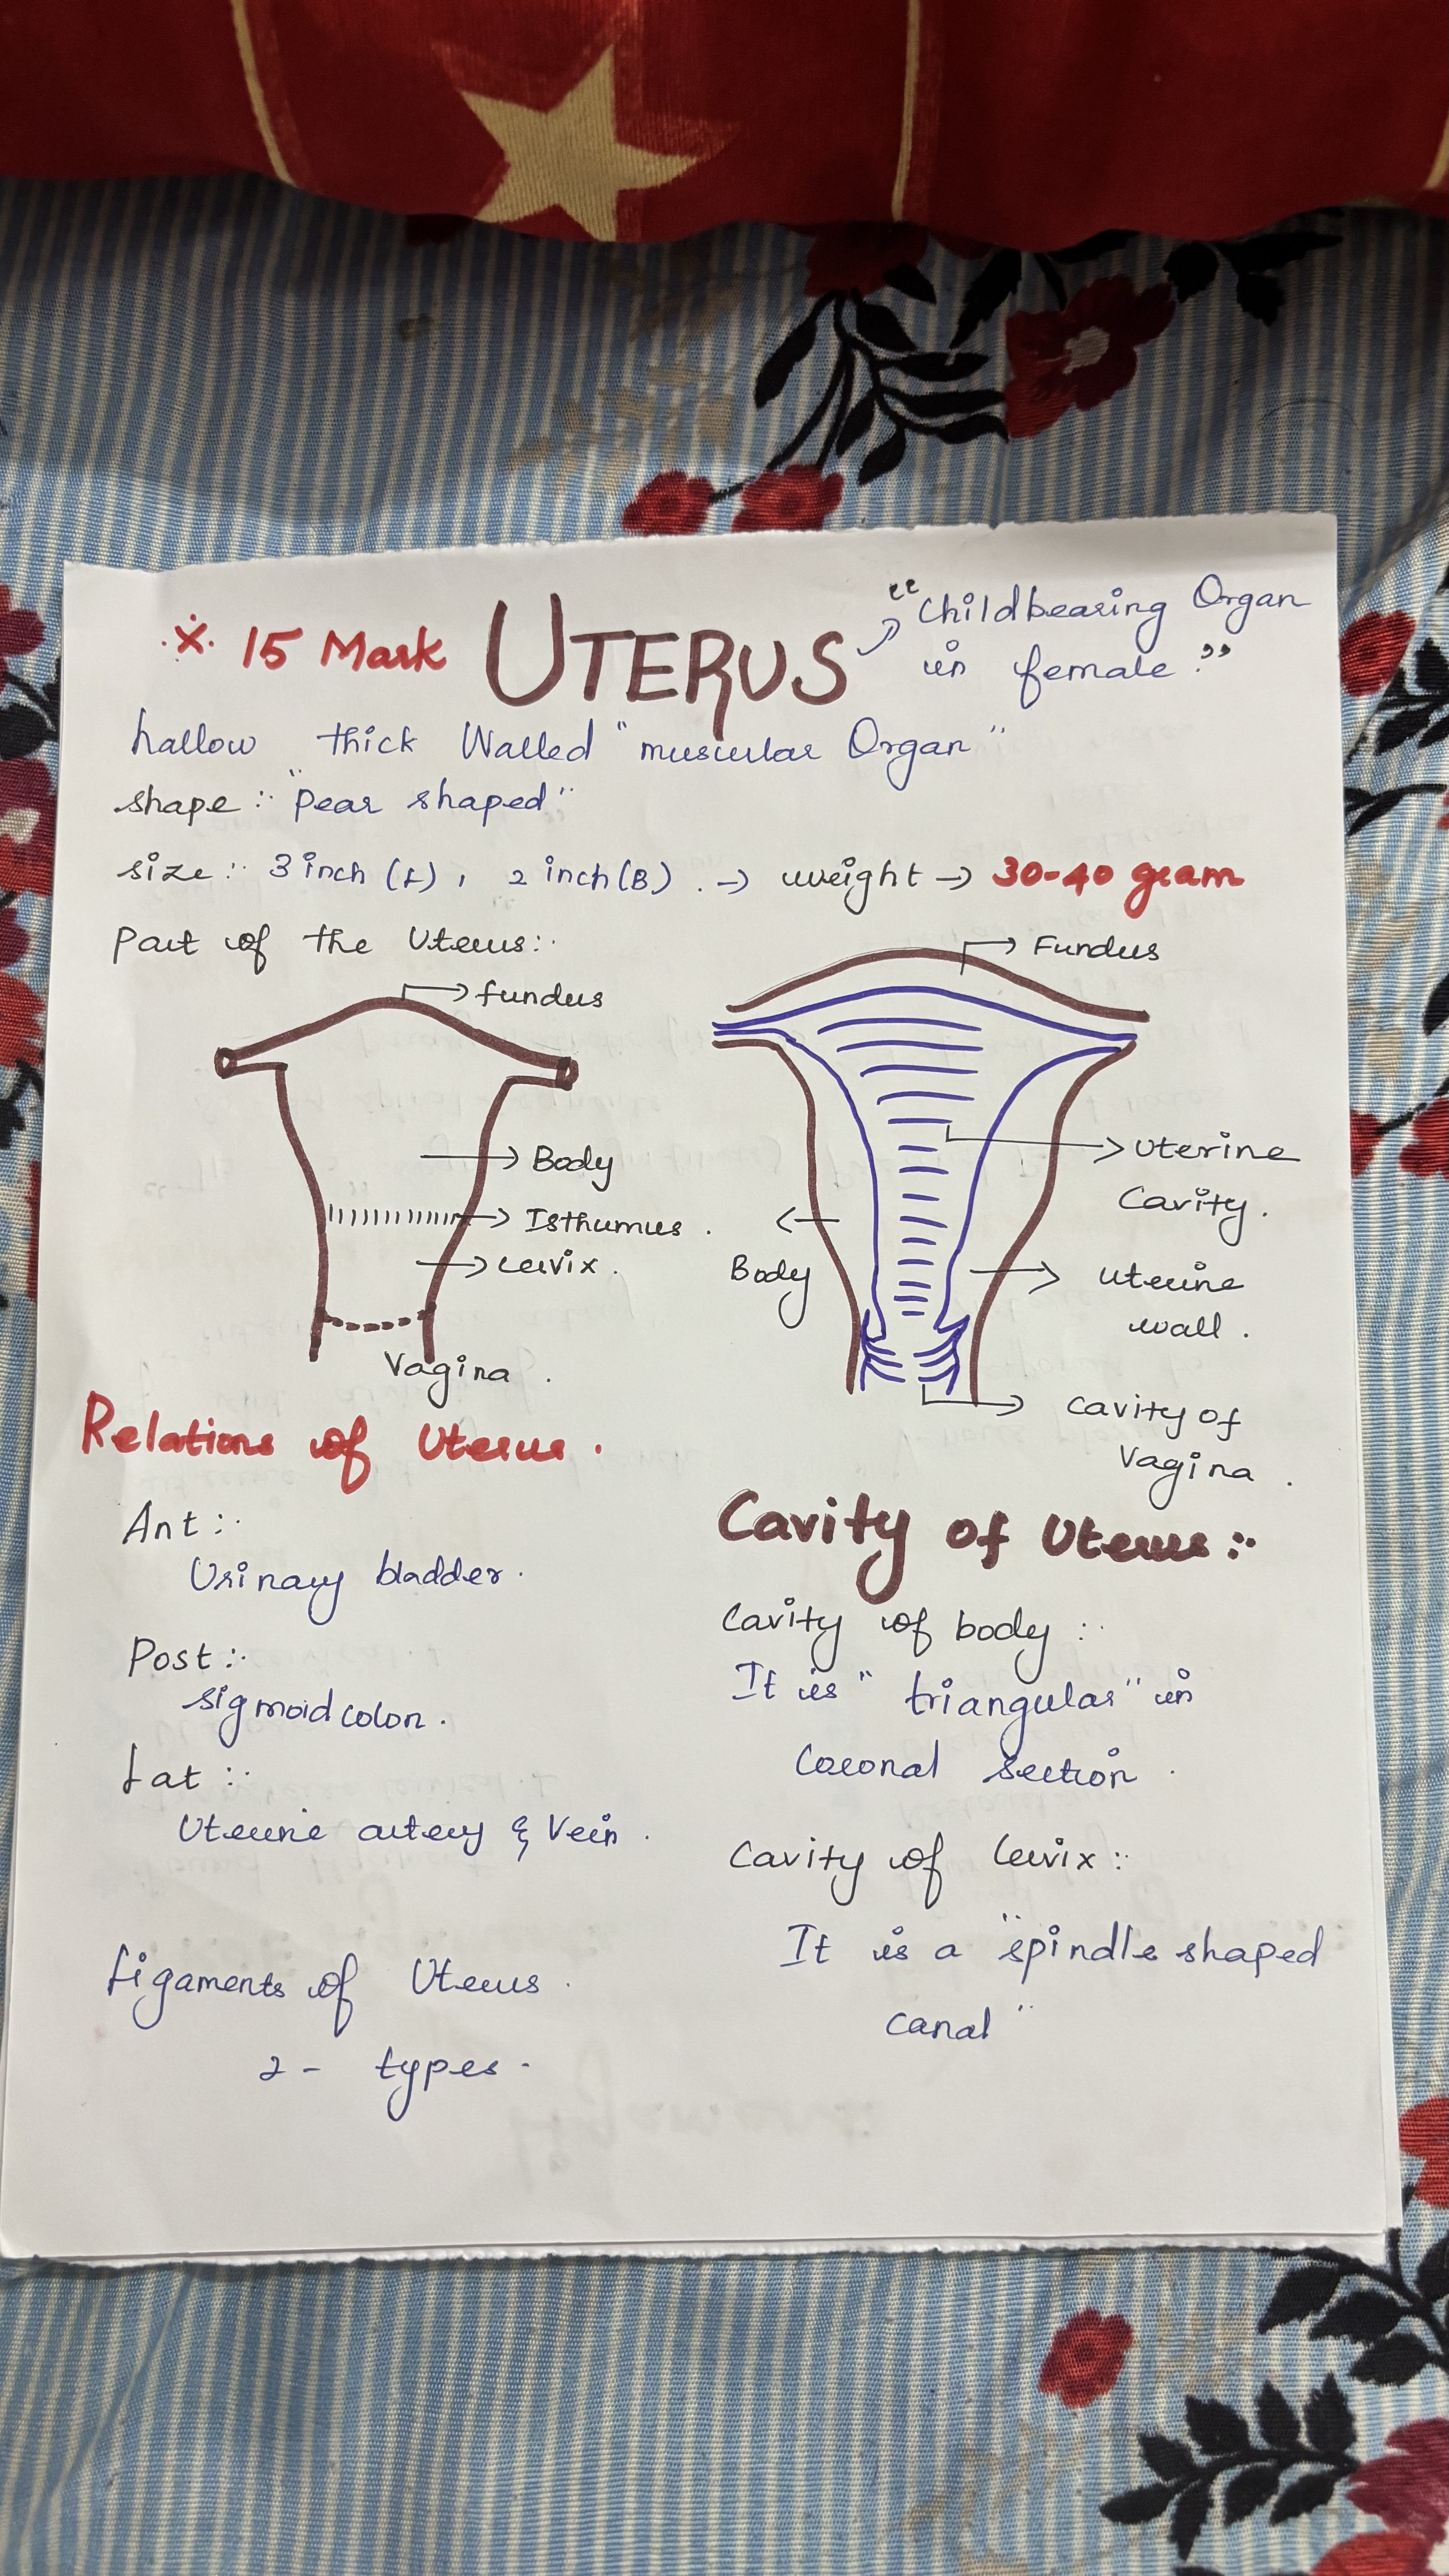 ※ 15 Mark UTERUS → "Childbearing Organ
in female."
hallow thick Walled "muscular Organ"
shape :- "Pear shaped"
size :- 3 inch (L), 2 inch (B). → weight → 30-40 gram
Part of the Uterus:-
→ fundus
→ Body
→ Isthumus.
→ cervix.
Vagina.
→ Fundus
→ Uterine
Cavity.
← Body
→ Uterine
wall.
→ Cavity of
Vagina.
Relations of Uterus.
Ant :-
Urinary bladder.
Post :-
sigmoid colon.
Lat :-
Uterine artery & Vein.
Ligaments of Uterus.
2 - types.
Cavity of Uterus :-
Cavity of body :-
It is "triangular" in
Coronal section.
Cavity of Cervix :-
It is a "spindle shaped
canal"